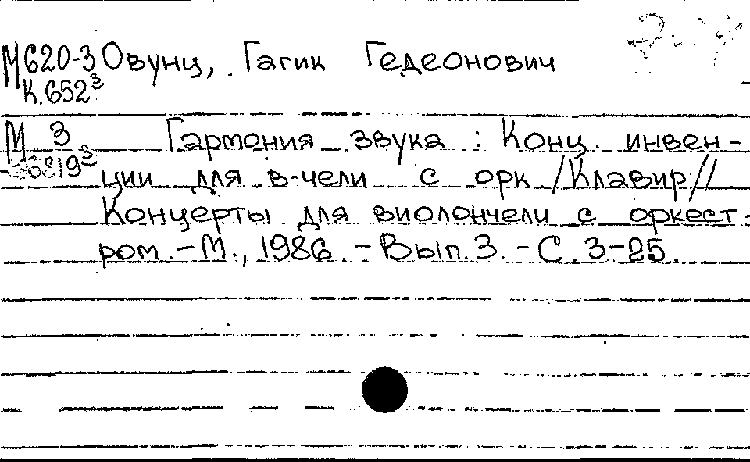 М620-3 Овунц, Гагик Гедеонович
К.652³
М 3 Гармония звука : Конц. инвен-
6819³ ции для в-чели с орк /Клавир//
Концерты для виолончели с оркест-
ром.-М., 1986.-Вып.3.-С.3-25.